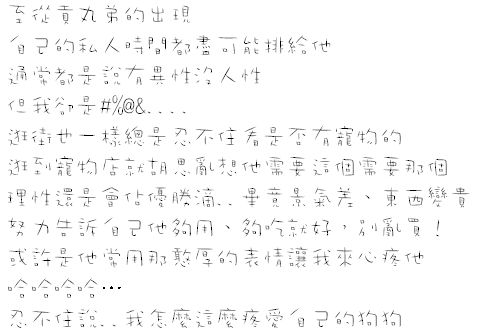 至從貢丸弟的出現
自己的私人時間都盡可能排給他
通常都是說有異性沒人性
但我卻是#%@&....
逛街也一樣總是忍不住看是否有寵物的
逛到寵物店就胡思亂想他需要這個需要那個
理性還是會佔優勝滴..畢竟景氣差、東西變貴
努力告訴自己他夠用、夠吃就好，別亂買！
或許是他常用那憨厚的表情讓我來心疼他
哈哈哈哈…
忍不住說..我怎麼這麼疼愛自己的狗狗